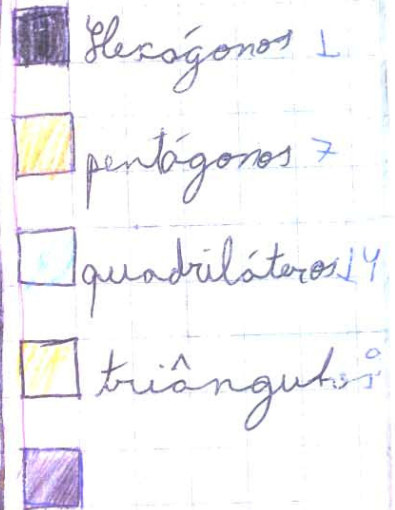 Hexágonos 1
pentágonos 7
quadriláteros 14
triângulos